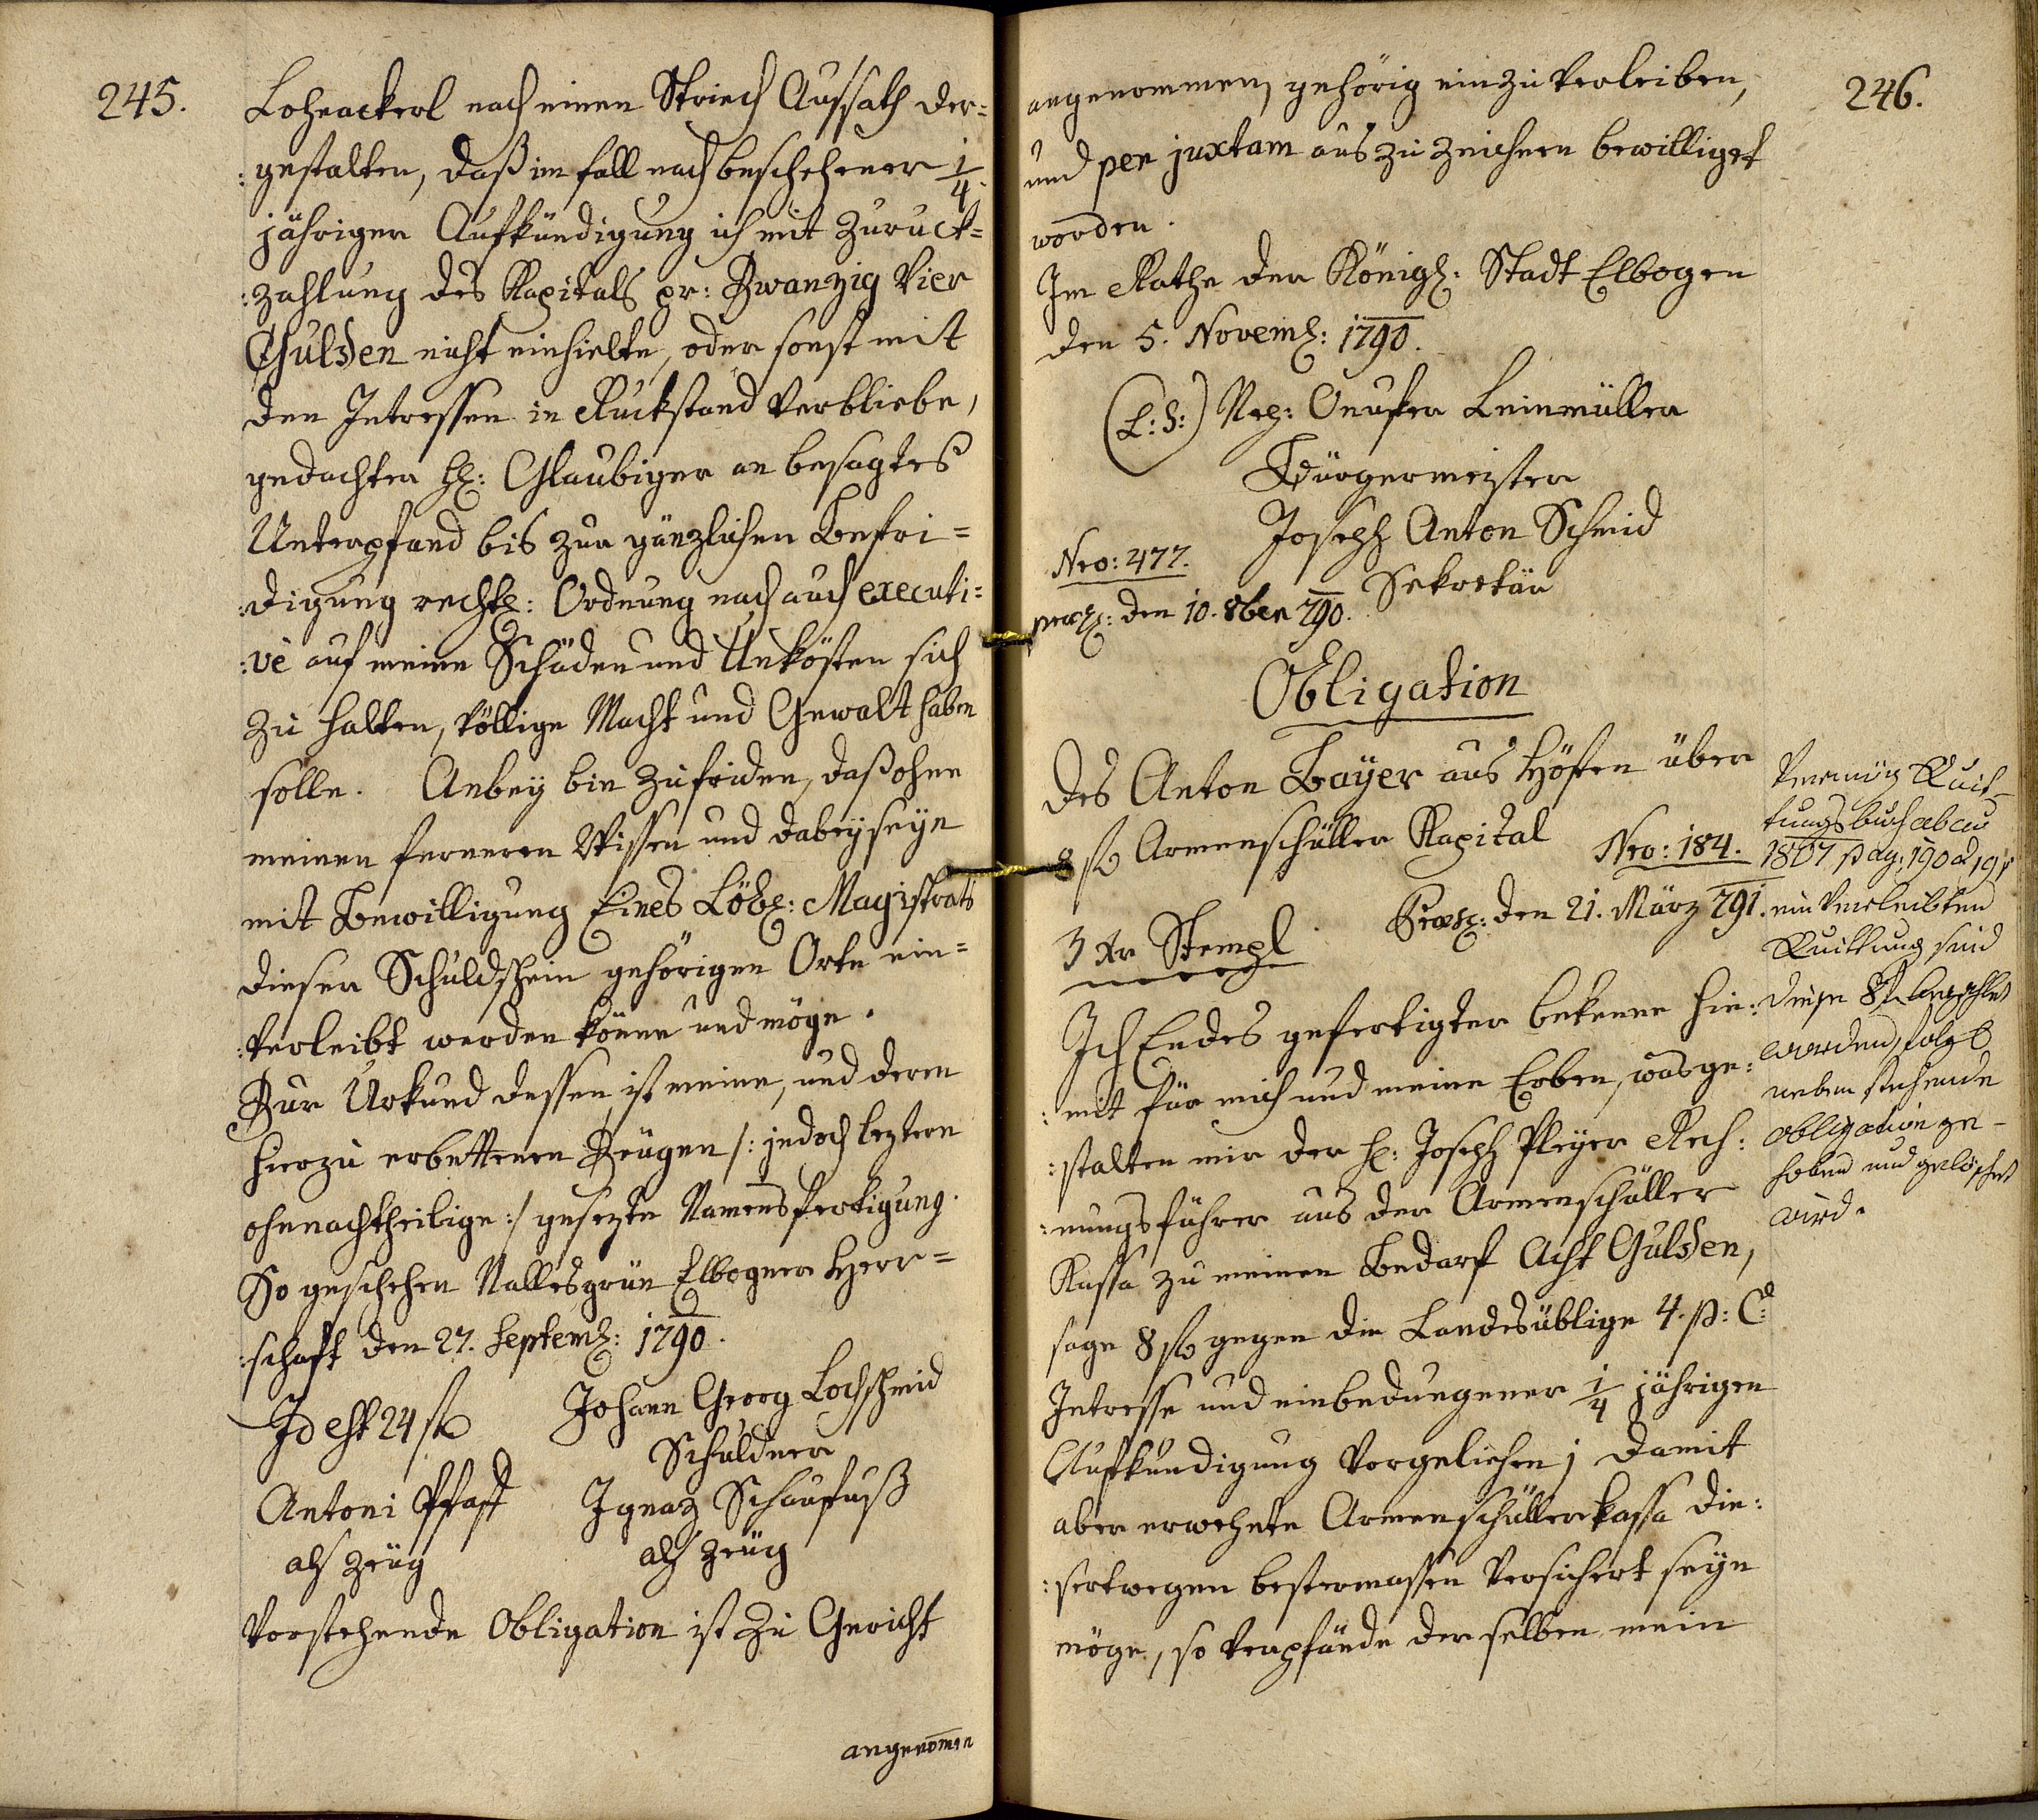 245.
Lohnackerl nach einen Striech Aussath der=
:gestalten, daß im fall nach beschehener 1/4.
jähriger Aufkündigung ich mit Zuruck=
:zahlung des Kapitals pr: Zwanzig Vier
Gulden nicht einhielte, oder sonst mit
den Intressen in Ruckstand verbliebe,
gedachter H: Glaubiger an besagtes
Unterpfand bis zur gänzlichen Befri=
:digung rechtl: Ordnung nach auch executi=
:vè auf meine Schäden und Unkösten sich
zu halten, völlige Macht und Gewalt haben
solle. Anbey bin zufriden, daß ohne
meinen ferneren Wissen und dabeyseyn
mit Bewilligung Eines Löbl: Magistrats
dieser Schuldschein gehörigen Orts ein=
:verleibt werden könne und möge.
Zur Urkund dessen ist meine, und deren
hierzu erbettenen Zeügen /: jedoch leztern
ohnnachtheilige :/ gesezte Namensfertigung.
So geschehen Nallesgrün Elbogner Herr=
:schaft den 27. Septemb: 1790.
Id est 24 f Johann Georg Lochschmid
Schuldner
Antoni Pfaff Ignaz Schauffuß
als Zeüg als Zeüg
Vorstehende Obligation ist zu Gericht
angenomen
246.
angenommen, gehörig einzuverleiben,
und per juxtam auszuzeichnen bewilliget
worden.
Im Rathe der Königl: Stadt Elbogen
den 5. Novemb: 1790.
(L:S:) Onufer Leinmüller
Bürgermeister
Joseph Anton Schmid
Sekretär
Nro: 477.
praes: den 10. 8ber 790.
Obligation
des Anton Bayer aus Höften über
8 f Armenschüller Kapital
Nro: 184.
3 xr Stempl
Praes: den 21. März 791.
Ich Endes gefertigter bekenne hie:
:mit für mich und meine Erben, was ge:
:stalten mir der H: Joseph Pleyer Rech:
:nungsführer aus der Armenschüller
Kassa zu meinen Bedarf Acht Gulden,
sage 8 f gegen die Landesüblige 4. p: C:
Intresse und einbedungener 1/4 jährigen
Aufkündigung vorgeliehen; damit
aber erwehnte Armenschüllerkassa die:
:sertwegen bestermassen versichert seyn
möge, so verpfände derselben mein
Vermög Quit-
tungsbuch
1807 pag: 190
einverleibten
Quittung sind
diese 8 f bezahlet
worden, folgl
neben stehende
obligation ge-
hoben und gelöschet
wird.